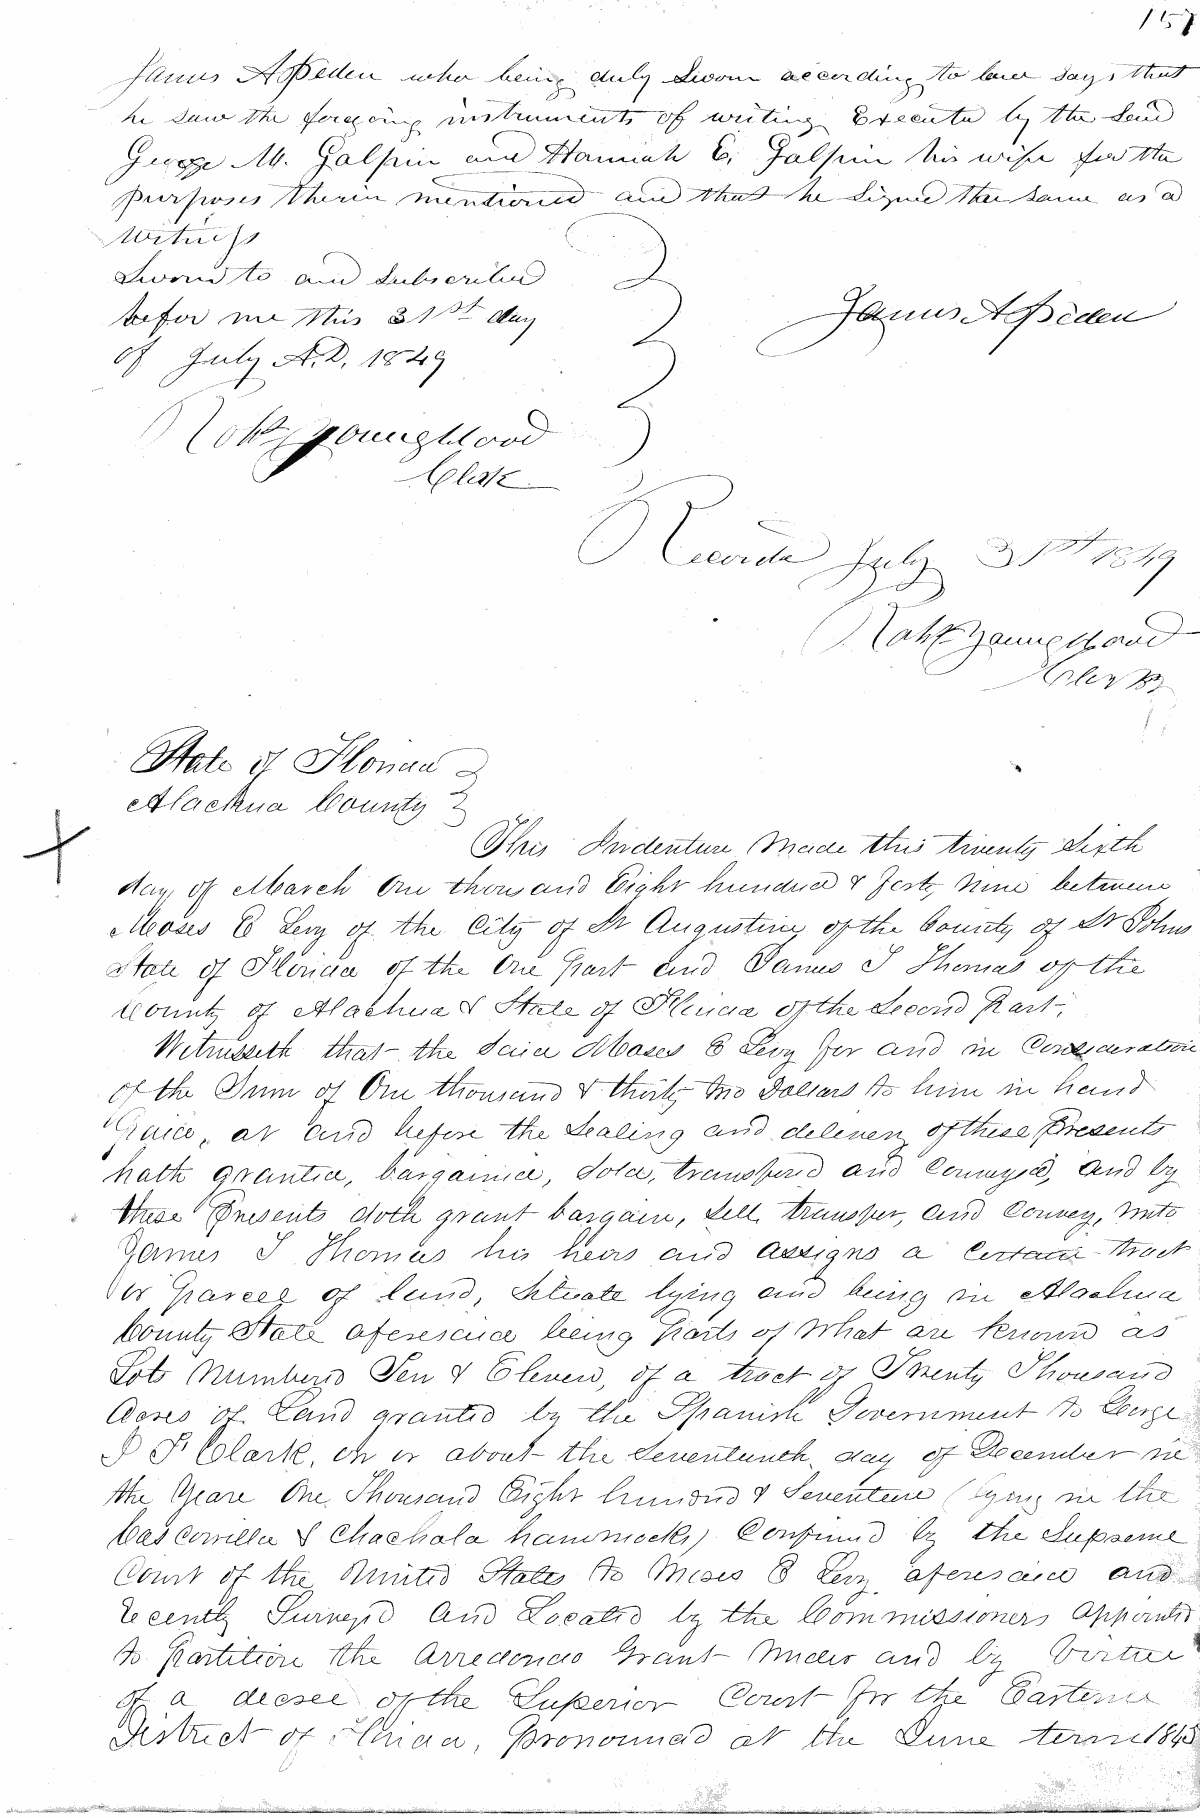 157
James A Peden who being duly Sworn according to law says that
he saw the foregoing instruments of writing Execute by the Said
George M. Galphin and Hannah E. Galphin his wife for the
purposes therin mentioned and that he Signed the same as a
Witness
Sworn to and Subscribed
befor me this 31st day
of July A.D. 1849
James A Peden
Robt Youngblood
Clerk
Recorded July 31st 1849
Robt Youngblood
Clerk
State of Florida
Alachua County
This Indenture Made this twenty Sixth
day of March One thousand Eight hundred & forty Nine between
Moses E Levy of the City of St Augustine of the County of St Johns
State of Florida of the One Part and James T Thomas of the
County of Alachua & State of Florida of the Second Part,
Witnesseth that the Said Moses E Levy for and in Consideration
of the Sum of One thousand & thirty two Dollars to him in hand
Paid, at and before the Sealing and delivery of these Presents
hath granted, bargained, Sold, transferd and Conveyed, and by
these Presents doth grant bargain, Sell, transfer, and Convey, unto
James T Thomas his heirs and assigns a Certain tract
or Parcel of land, Situate lying and being in Alachua
County State aforesaid being Parts of What are known as
Lots Numbered Ten & Eleven, of a tract of Twenty Thousand
Acres of Land granted by the Spanish Government to George
J F Clark, on or about the Seventeenth day of December in
the Yeare One Thousand Eight hundred & Seventeen (lying in the
Cuscowilla & Chachala hammocks) Confirmed by the Supreme
Court of the United States to Moses E Levy aforesaid and
recently Surveyed and Located by the Commissioners appointed
to Partition the Arredondo Grant Under and by Virtue
of a decree of the Superior Court for the Eastern
District of Florida, Pronounced at the June term 1845